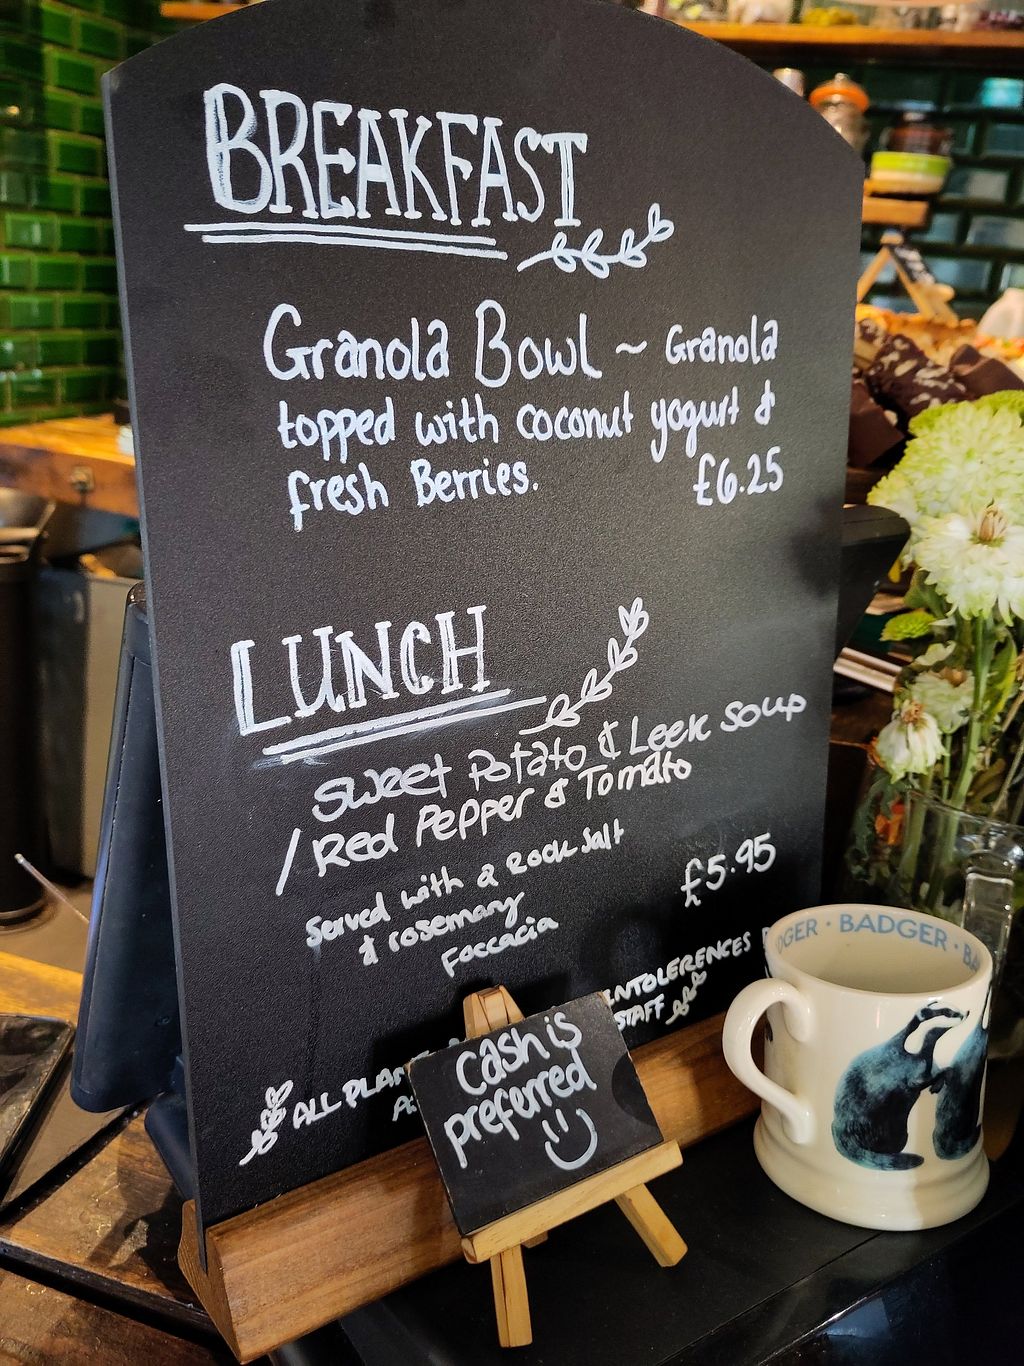 BREAKFAST
Granola Bowl ~ Granola
topped with coconut yogurt &
fresh Berries. £6.25
LUNCH
Sweet Potato & Leek Soup
/Red Pepper & Tomato
Served with a Rock Salt
& rosemary
Foccacia
£5.95
ALL PLAN
INTOLERENCES
STAFF
cash is
preferred
BADGER · BADGER · BA